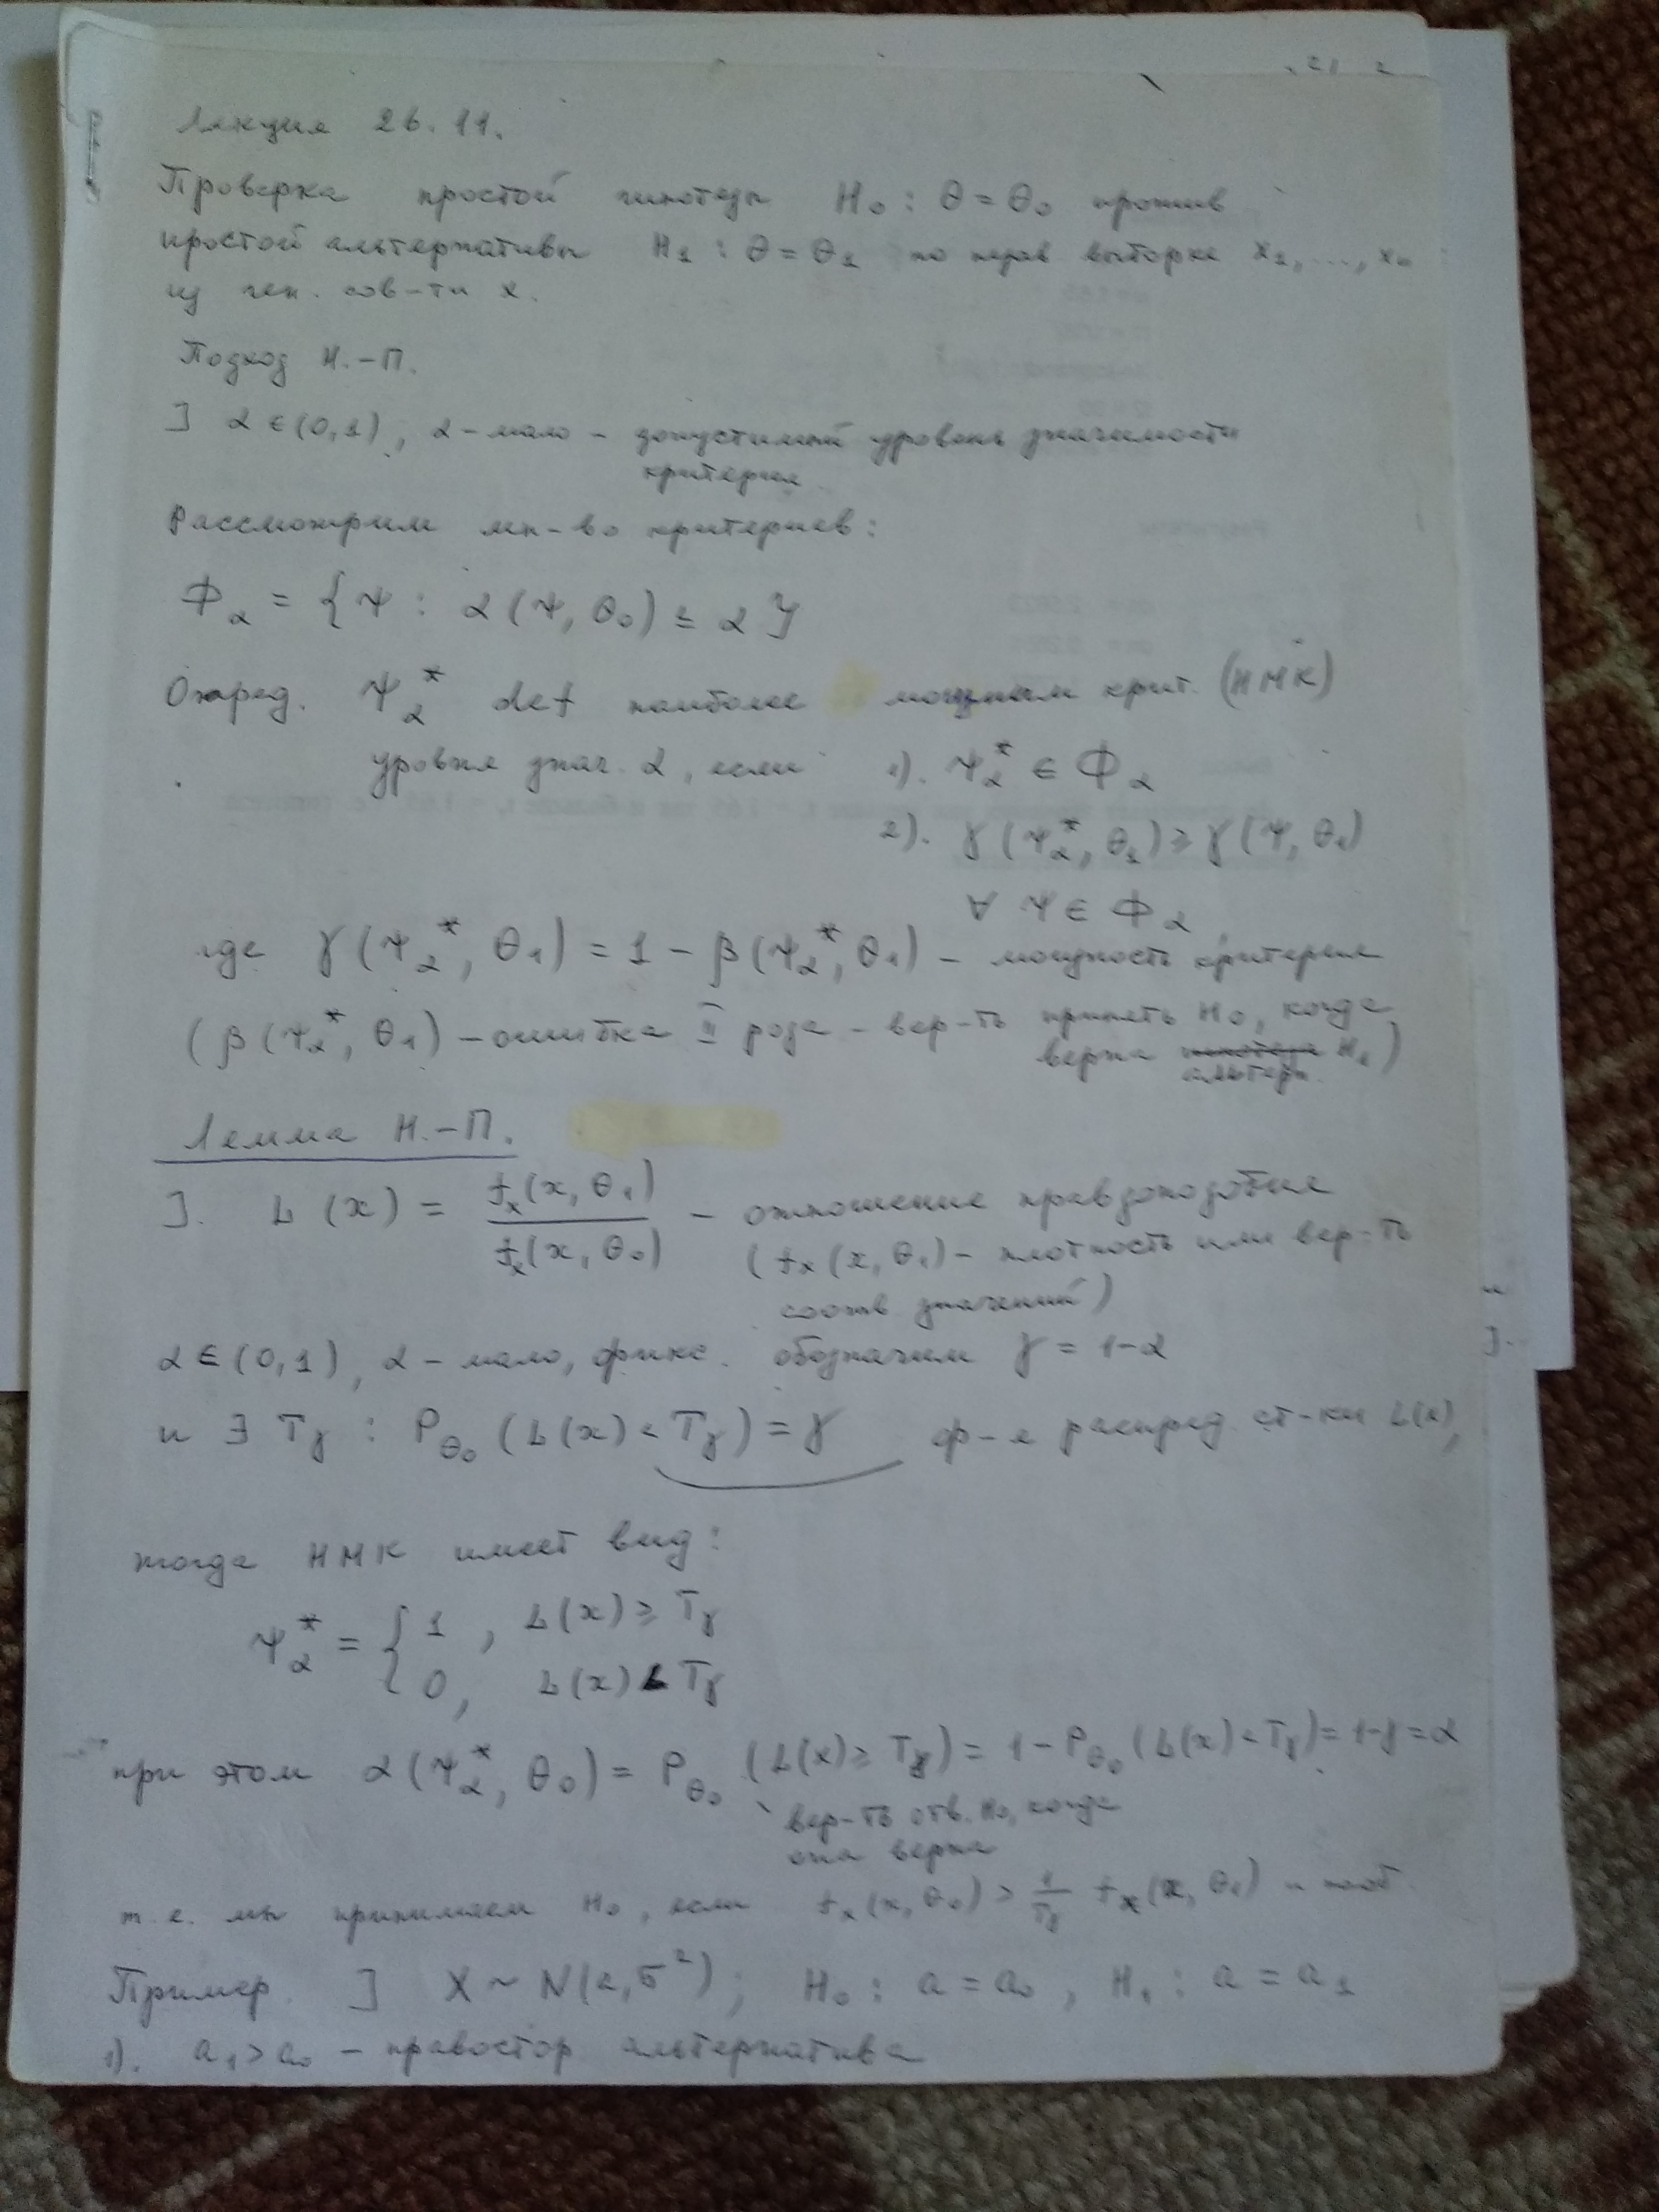 Лекция 26.11.
Проверка простой гипотезы H₀ : θ = θ₀ против
простой альтернативы H₁ : θ = θ₁ по выборке x₁, ..., xₙ
из ген. сов-ти X.
Подход Н.-П.
] α ∈ (0,1), α - мало - допустимый уровень значимости
критерия
Рассмотрим мн-во критериев:
Φ_α = { Ψ : α(Ψ, θ₀) ≤ α }
Опред. Ψ_α* def наиболее мощным крит. (НМК)
уровня знач. α, если 1). Ψ_α* ∈ Φ_α
2). γ(Ψ_α*, θ₁) ≥ γ(Ψ, θ₁)
∀ Ψ ∈ Φ_α,
где γ(Ψ_α*, θ₁) = 1 - β(Ψ_α*, θ₁) - мощность критерия
(β(Ψ_α*, θ₁) - ошибка II рода - вер-ть принять H₀, когда
верна гипотеза H₁)
альтерн.
Лемма Н.-П.
]. L(x) = f_x(x, θ₁) / f_x(x, θ₀) - отношение правдоподобия
(f_x(x, θ₁) - плотность или вер-ть
соотв значений)
α ∈ (0,1), α - мало, фикс. обозначим γ = 1-α
и ∃ T_γ : P_θ₀ (L(x) < T_γ) = γ ф-я распред. ст-ки L(x),
тогда НМК имеет вид:
Ψ_α* = { 1, L(x) ≥ T_γ
0, L(x) < T_γ
при этом α(Ψ_α*, θ₀) = P_θ₀ (L(x) ≥ T_γ) = 1 - P_θ₀ (L(x) < T_γ) = 1-γ = α
вер-ть отв. H₀, когда
она верна
т.е. мы принимаем H₀, если f_x(x, θ₀) > 1/T_γ f_x(x, θ₁) и наоб.
Пример. ] X ~ N(a, σ²); H₀ : a = a₀, H₁ : a = a₁
1). a₁ > a₀ - правостор альтернатива